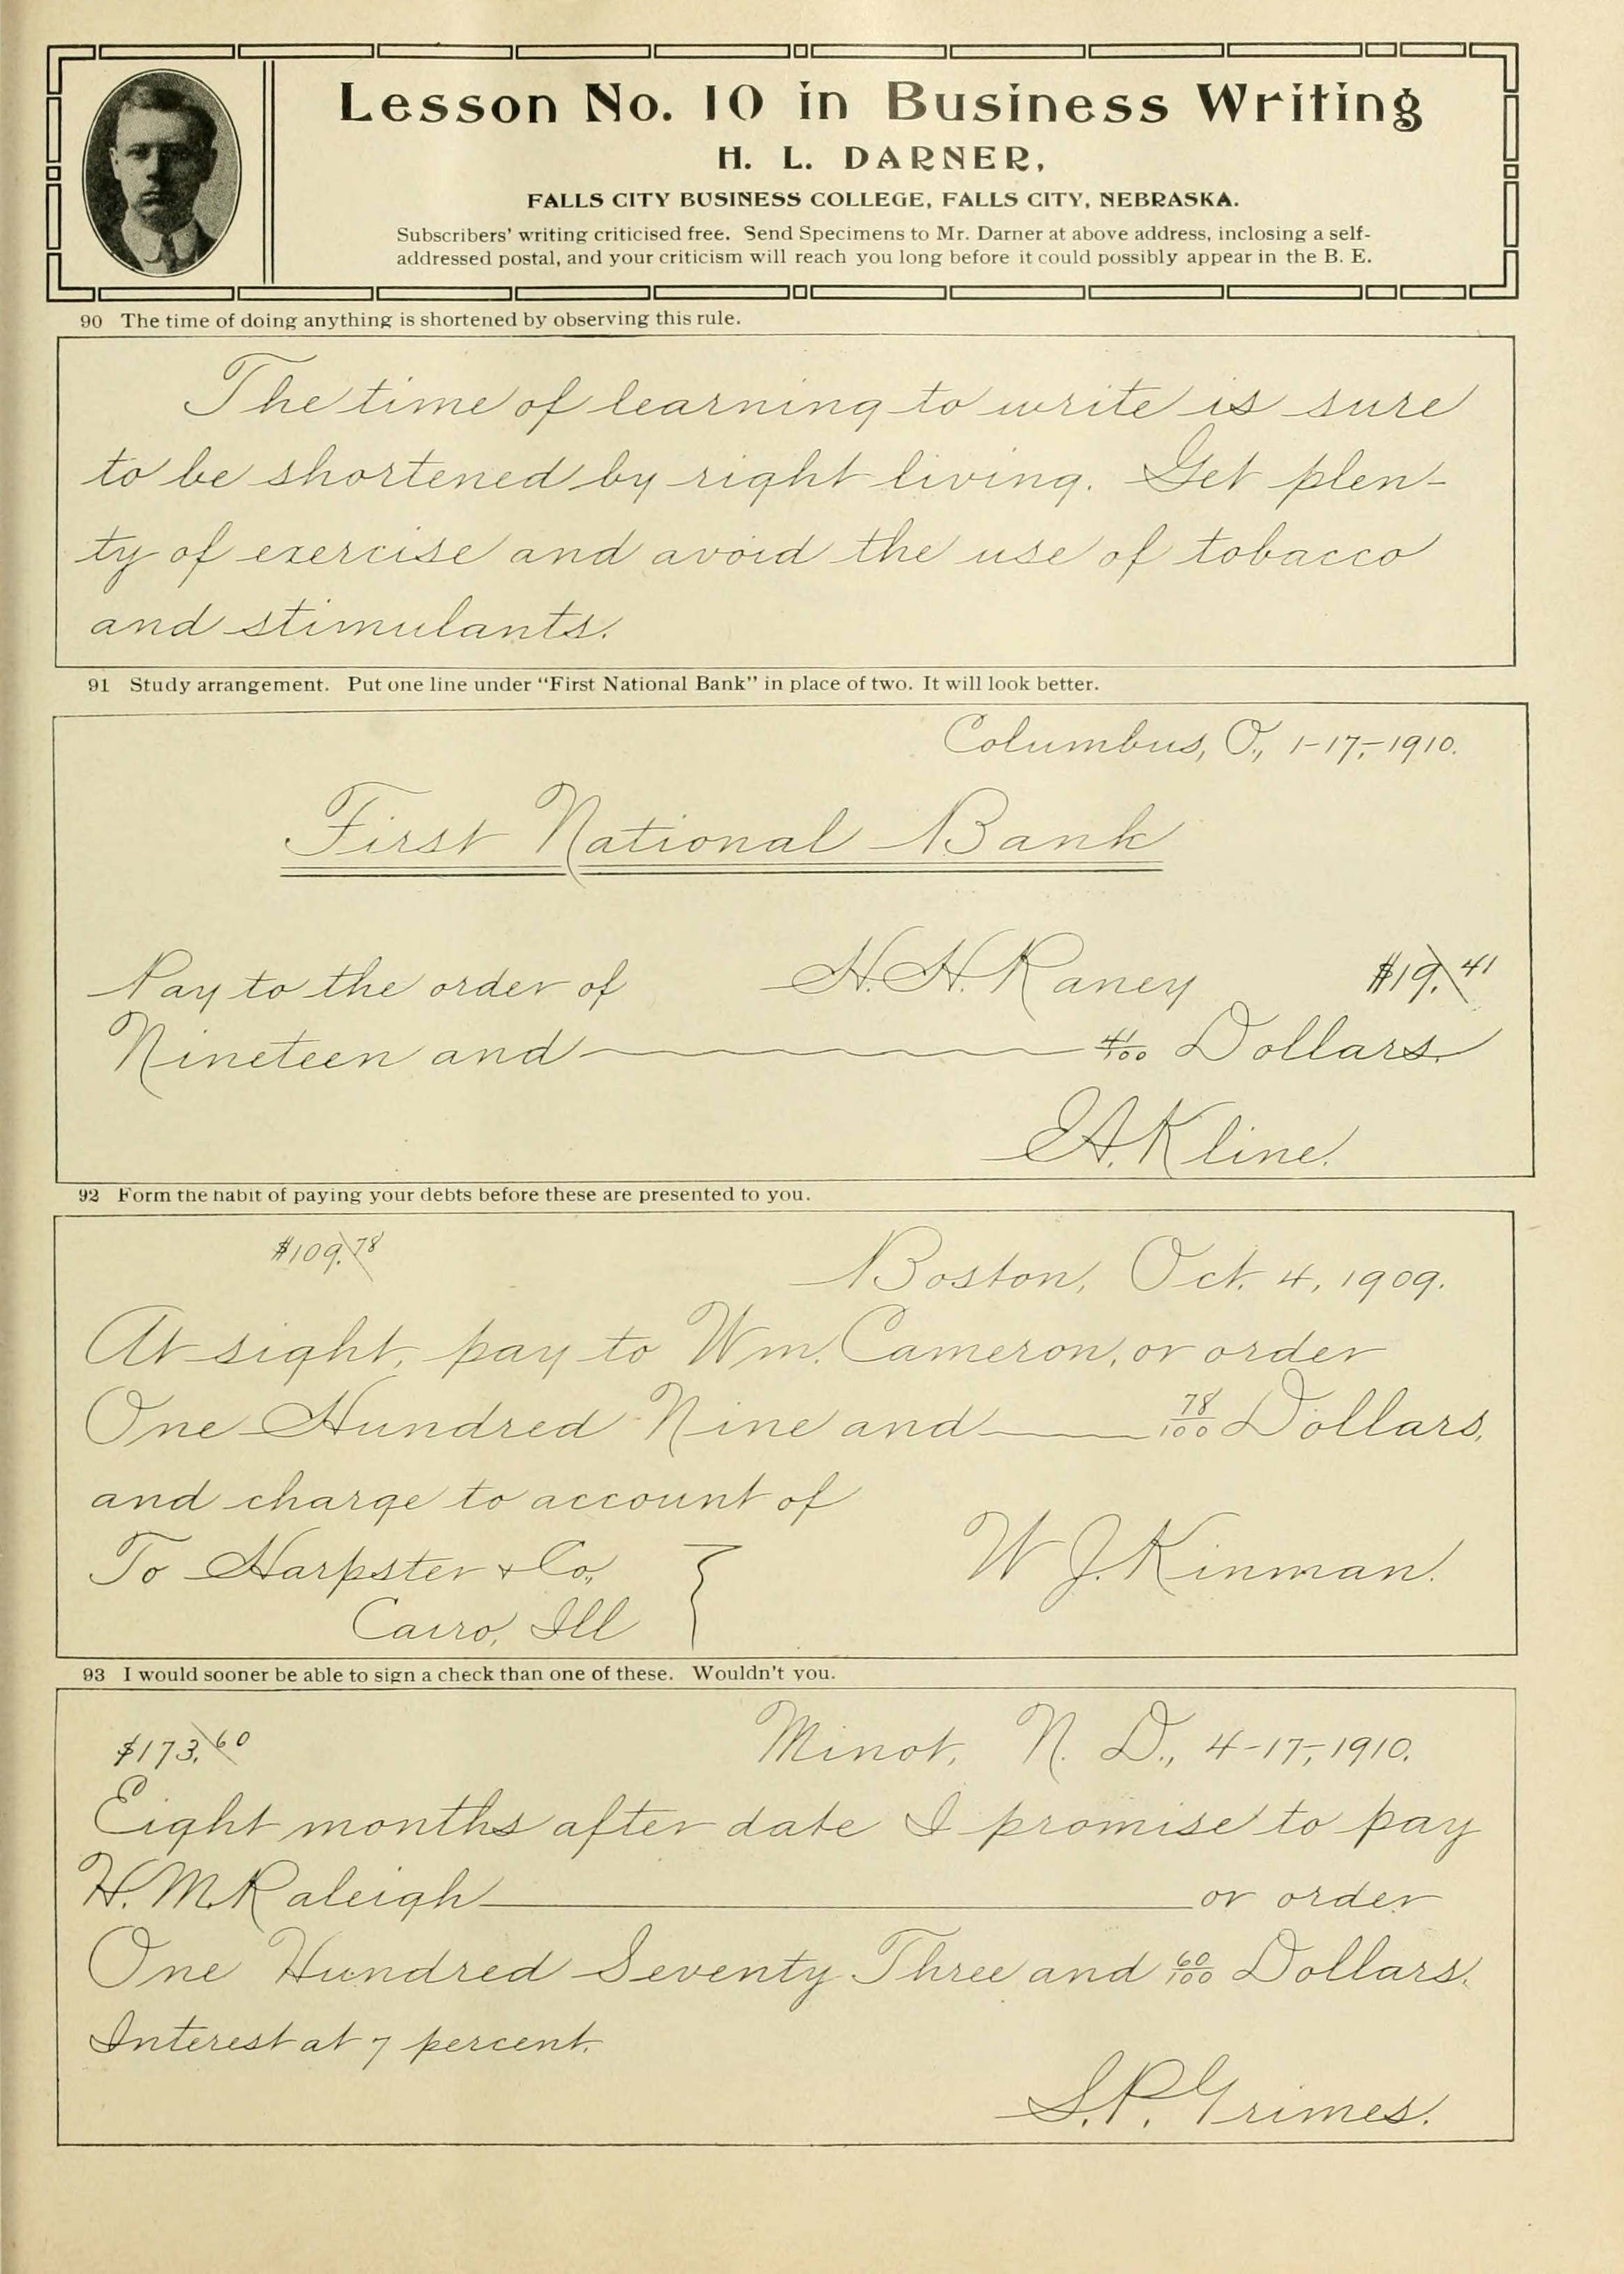 Lesson No. 10 in Business Writing
H. L. DARNER,
FALLS CITY BUSINESS COLLEGE, FALLS CITY, NEBRASKA.
Subscribers' writing criticised free. Send Specimens to Mr. Darner at above address, inclosing a self-
addressed postal, and your criticism will reach you long before it could possibly appear in the B. E.
90 The time of doing anything is shortened by observing this rule.
The time of learning to write is sure
to be shortened by right living. Get plen-
ty of exercise and avoid the use of tobacco
and stimulants.
91 Study arrangement. Put one line under "First National Bank" in place of two. It will look better.
Columbus, O., 1-17,-1910.
First National Bank
Pay to the order of H. H. Raney $19.41
Nineteen and 41/100 Dollars.
E. A. Kline.
92 Form the habit of paying your debts before these are presented to you.
$109.78 Boston, Oct. 4, 1909.
At sight, pay to Wm. Cameron, or order
One Hundred Nine and 78/100 Dollars,
and charge to account of
To Harpster & Co., W. J. Kinman.
Cairo, Ill
93 I would sooner be able to sign a check than one of these. Wouldn't you.
$173.60 Minot, N. D., 4-17,-1910.
Eight months after date I promise to pay
H. M. Raleigh or order
One Hundred Seventy Three and 60/100 Dollars.
Interest at 7 percent.
S. P. Grimes.